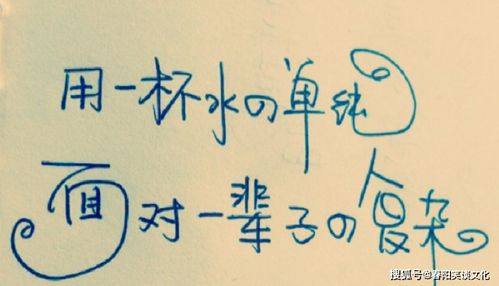 用一杯水の单纯
面对一辈子の复杂
搜狐号@春阳笑谈文化